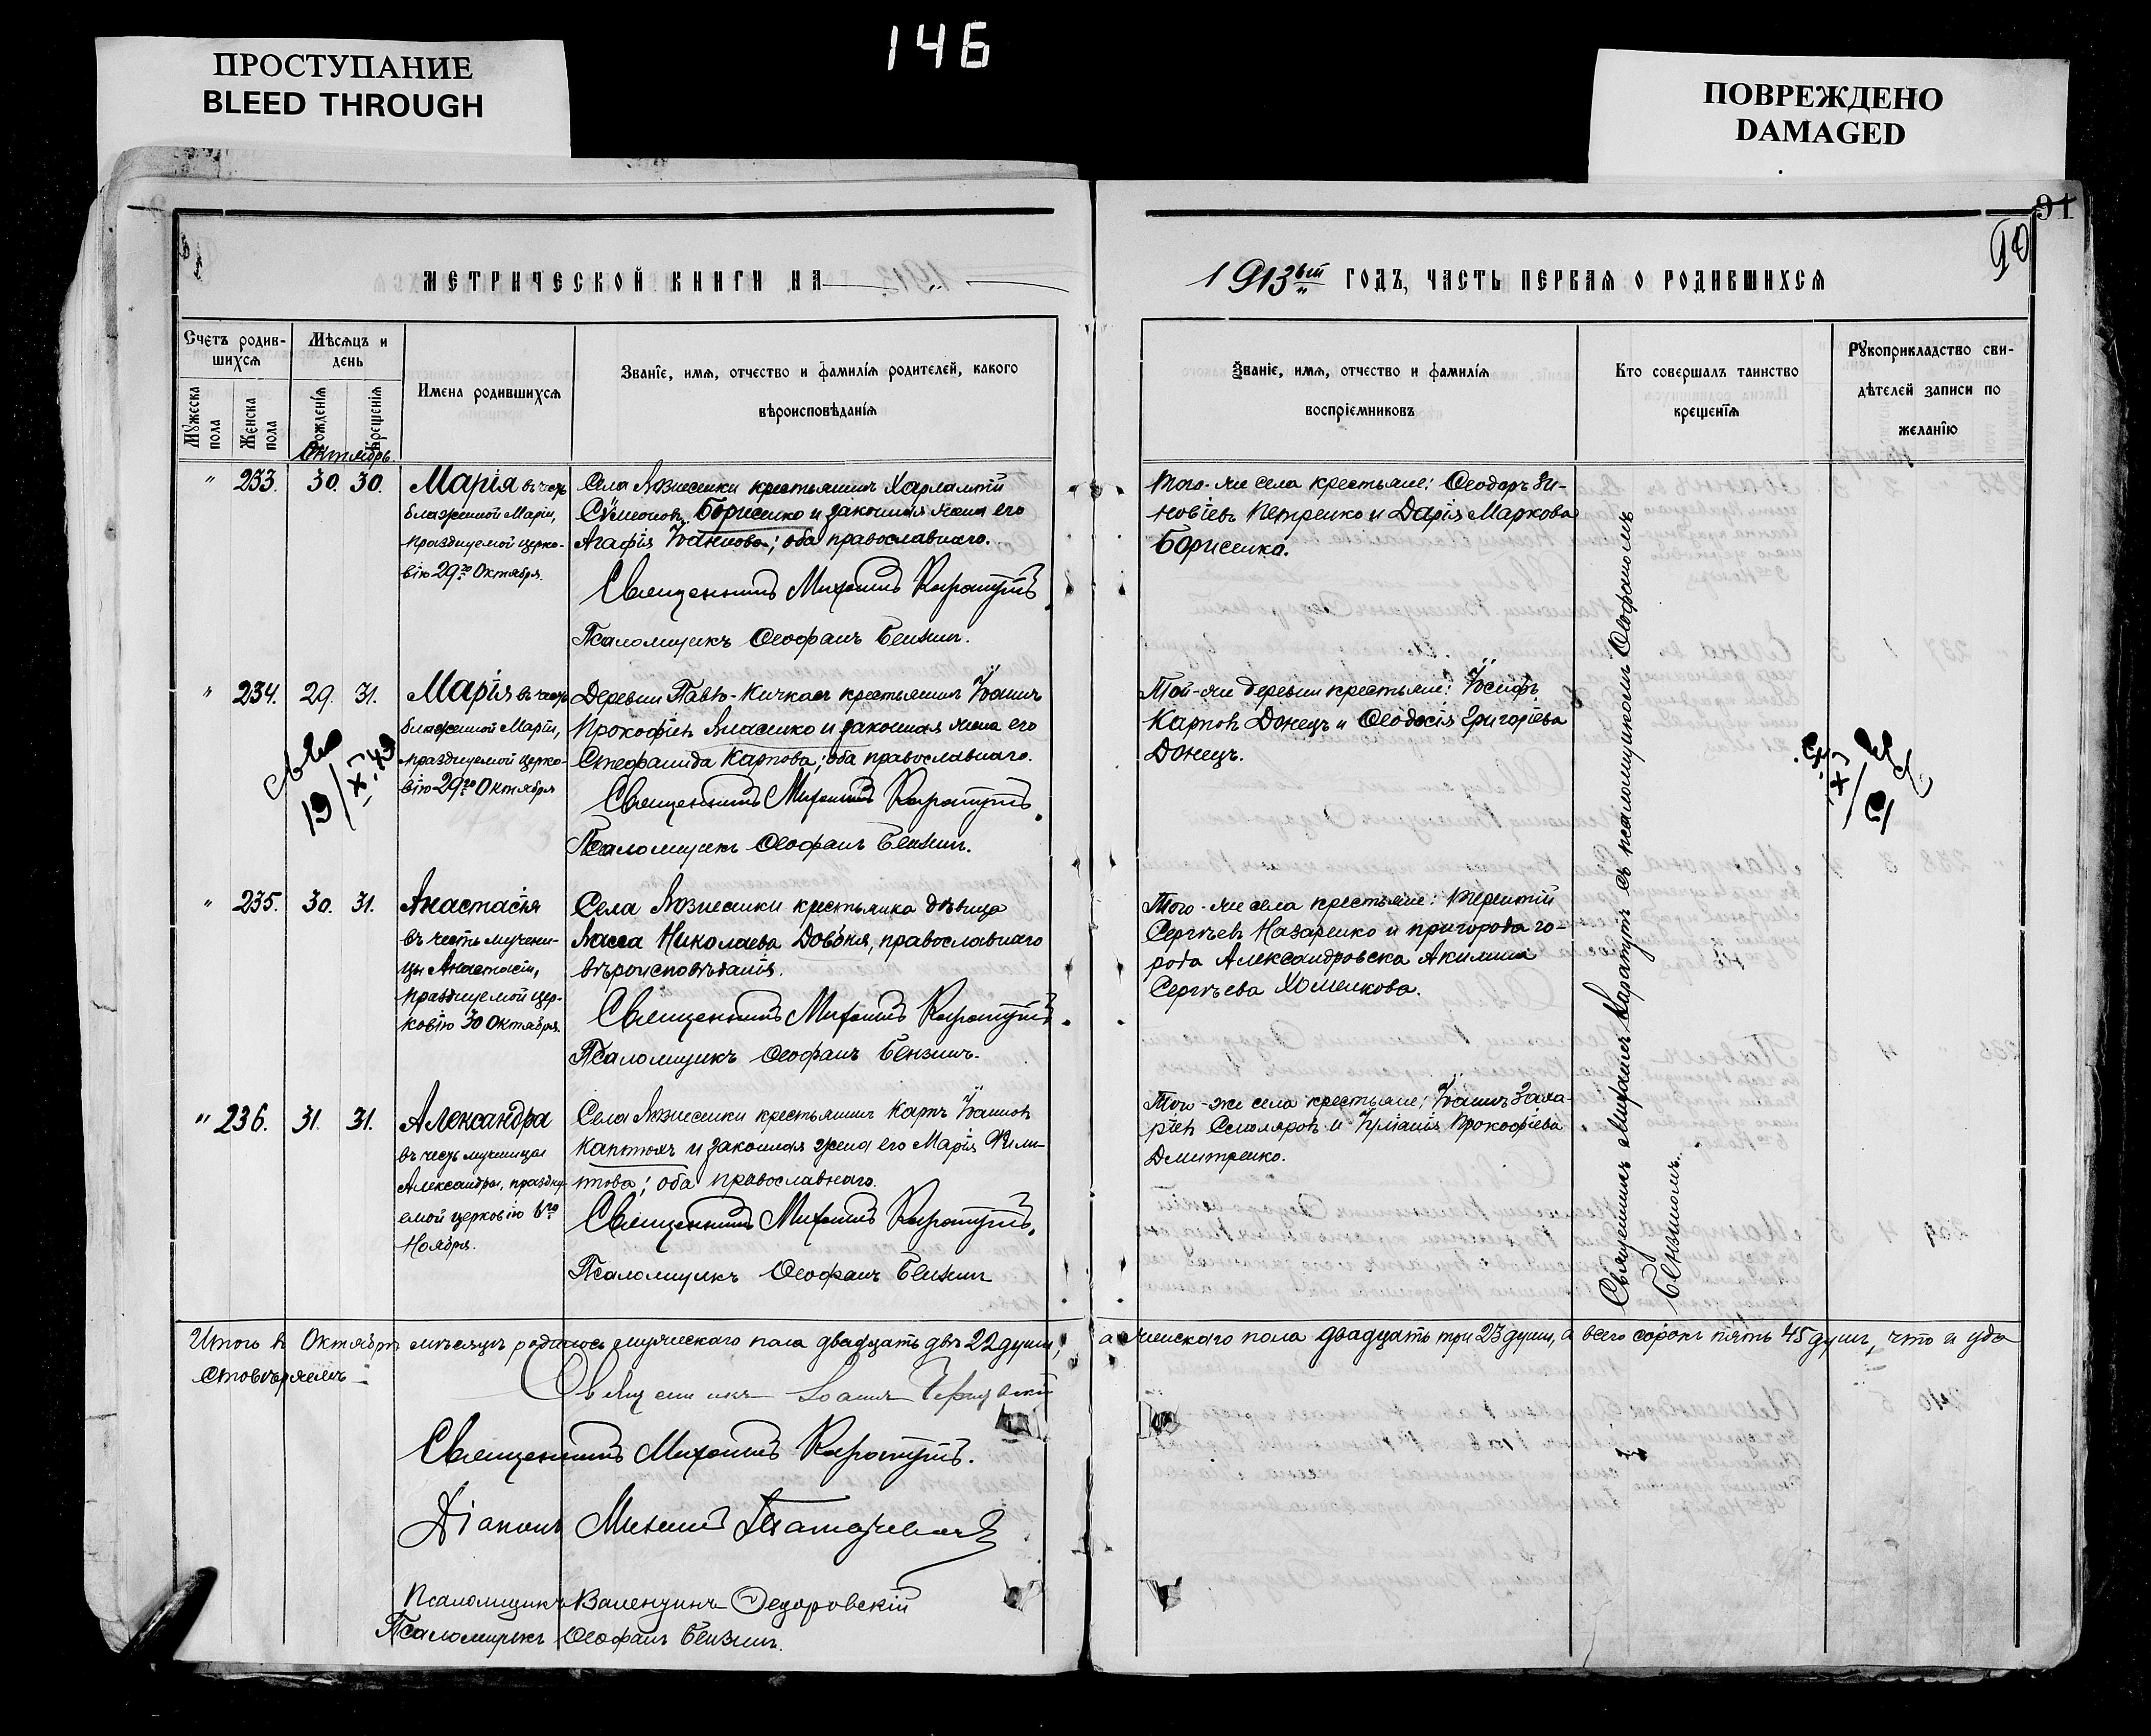 146
ПРОСТУПАНИЕ
BLEED THROUGH
ПОВРЕЖДЕНО
DAMAGED
91
90
МЕТРИЧЕСКОЙ КНИГИ НА
1913ый ГОДЪ, ЧАСТЬ ПЕРВАЯ О РОДИВШИХСЯ
Счетъ родив-
шихся
Мужеска пола
Женска пола
Мѣсяцъ и
день
Рожденія
Крещенія
Имена родившихся
Званіе, имя, отчество и фамилія родителей, какого
вѣроисповѣданія
Званіе, имя, отчество и фамилія
воспріемниковъ
Кто совершалъ таинство
крещенія
Рукоприкладство сви-
дѣтелей записи по
желанію
Октябрь.
" 233. 30. 30.
Марія въ честь
блаженной Маріи,
празднуемой церко-
вію 29го Октября.
Села Вознесенки крестьянинъ Харлампій
Сѵмеоновъ Борисенко и законная жена его
Агафія Іоаннова; оба православнаго.
Священникъ Михаилъ Карапутъ.
Псаломщикъ Ѳеофанъ Бензинъ.
Того-же села крестьяне: Ѳеодоръ Зи-
новіевъ Петренко и Дарія Маркова
Борисенко.
" 234. 29. 31.
Марія въ честь
блаженной Маріи,
празднуемой церко-
вію 29го Октября
Деревни Павло-Кичкасъ крестьянинъ Іоаннъ
Прокофіевъ Власенко и законная жена его
Стефанида Карпова; оба православнаго.
Священникъ Михаилъ Карапутъ.
Псаломщикъ Ѳеофанъ Бензинъ.
Той-же деревни крестьяне: Іосифъ
Карповъ Донецъ и Ѳеодосія Григоріева
Донецъ.
19/XI 43
" 235. 30. 31.
Анастасія
въ честь мучени-
цы Анастасіи,
празднуемой цер-
ковію 30 Октября.
Села Вознесенки крестьянка дѣвица
Васса Николаева Довбня, православнаго
вѣроисповѣданія.
Священникъ Михаилъ Карапутъ
Псаломщикъ Ѳеофанъ Бензинъ.
Того-же села крестьяне: Терентій
Сергѣевъ Назаренко и пригорода го-
рода Александровска Акилина
Сергѣева Хоменкова.
" 236. 31. 31.
Александра
въ честь мученицы
Александры, праздну-
емой церковію 6го
Ноября.
Села Вознесенки крестьянинъ Карпъ Іоанновъ
Каптюхъ и законная жена его Марія Фили-
пова; оба православнаго.
Священникъ Михаилъ Карапутъ.
Псаломщикъ Ѳеофанъ Бензинъ
Того-же села крестьяне: Іоаннъ Заха-
ріевъ Столяровъ и Іуліанія Прокофіева
Дмитренко.
Священникъ Михаилъ Карапутъ съ псаломщикомъ Ѳеофаномъ
Бензиномъ.
Итого въ Октябрѣ мѣсяцѣ родилось мужескаго пола двадцать двѣ 22 души, а женскаго пола двадцать три 23 души, а всего сорокъ пять 45 душъ, что и удо
стовѣряемъ:
Священникъ Іоаннъ
Священникъ Михаилъ Карапутъ.
Діаконъ Михаилъ
Псаломщикъ Валентинъ Ѳедоровскій
Псаломщикъ Ѳеофанъ Бензинъ.